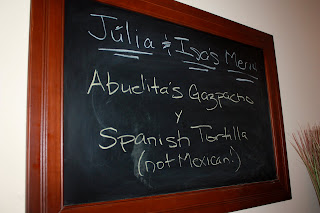 Júlia & Isa's Menu
Abuelita's Gazpacho
y
Spanish Tortilla
(not Mexican!)